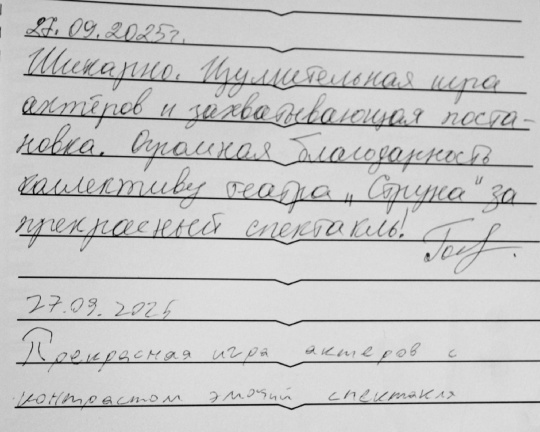 27.09.2025г.
Шикарно. Изумительная игра
актёров и захватывающая поста-
новка. Огромная благодарность
коллективу театра „Струна" за
прекрасный спектакль!
27.09.2025
Прекрасная игра актеров с
контрастом эмоций спектакля